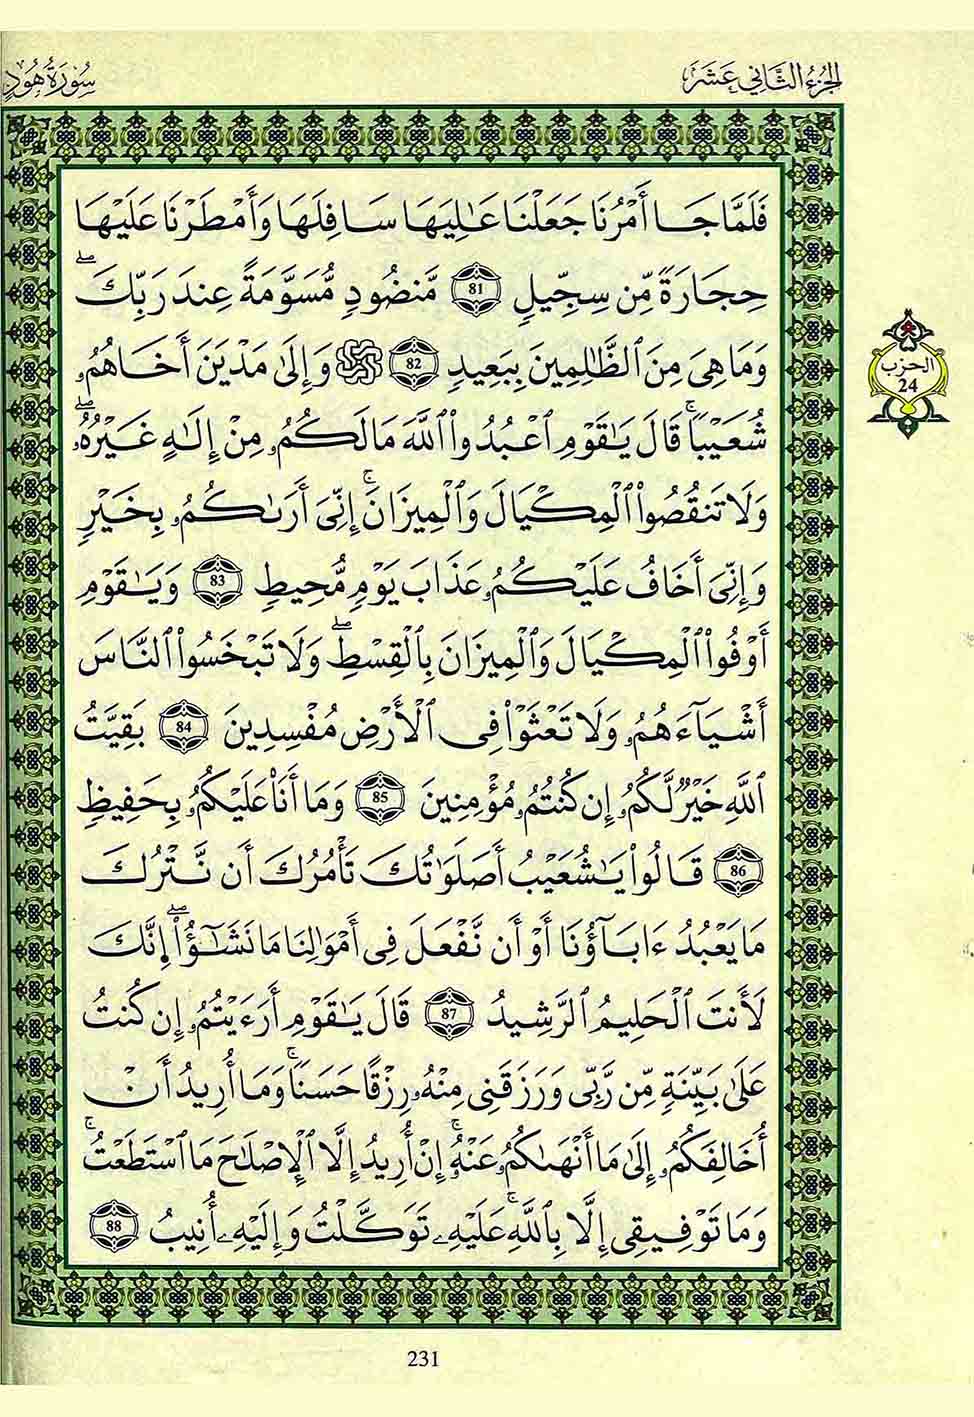 الجزء الثاني عشر
سورة هود
فَلَمَّا جَا أَمْرُنَا جَعَلْنَا عَٰلِيَهَا سَافِلَهَا وَأَمْطَرْنَا عَلَيْهَا
حِجَارَةً مِّن سِجِّيلٍ 81 مَّنضُودٍ مُّسَوَّمَةً عِندَ رَبِّكَۖ
وَمَا هِىَ مِنَ اَ۬لظَّٰلِمِينَ بِبَعِيدٍ 82 ۞ وَإِلَىٰ مَدْيَنَ أَخَاهُمُۥ
الحزب
24
شُعَيْباًۚ قَالَ يَٰقَوْمِ اِ۟عْبُدُواْ اُ۬للَّهَ مَا لَكُمُۥ مِنْ إِلَٰهٍ غَيْرُهُۥۖ
وَلَا تَنقُصُواْ اُ۬لْمِكْيَالَ وَالْمِيزَانَۚ إِنِّىَ أَرَىٰكُمُۥ بِخَيْرٍ
وَإِنِّىَ أَخَافُ عَلَيْكُمُۥ عَذَابَ يَوْمٍ مُّحِيطٍ 83 وَيَٰقَوْمِ
أَوْفُواْ اُ۬لْمِكْيَالَ وَالْمِيزَانَ بِالْقِسْطِۖ وَلَا تَبْخَسُواْ اُ۬لنَّاسَ
أَشْيَآءَهُمُۥ وَلَا تَعْثَوْاْ فِى اِ۬لْأَرْضِ مُفْسِدِينَ 84 بَقِيَّتُ
اُ۬للَّهِ خَيْرٌ لَّكُمُۥ إِن كُنتُمُۥ مُؤْمِنِينَ 85 وَمَا أَنَا۠ عَلَيْكُمُۥ بِحَفِيظٍ
86 قَالُواْ يَٰشُعَيْبُ أَصَلَوَٰتُكَ تَأْمُرُكَ أَن نَّتْرُكَ
مَا يَعْبُدُ ءَابَآؤُنَا أَوْ أَن نَّفْعَلَ فِى أَمْوَٰلِنَا مَا نَشَٰٓؤُاْۖ اِ۪نَّكَ
لَأَنتَ اَ۬لْحَلِيمُ اُ۬لرَّشِيدُ 87 قَالَ يَٰقَوْمِ أَرَءَيْتُمُۥ إِن كُنتُ
عَلَىٰ بَيِّنَةٍ مِّن رَّبِّى وَرَزَقَنِى مِنْهُۥ رِزْقًا حَسَنًاۚ وَمَا أُرِيدُ أَنْ
أُخَالِفَكُمُۥ إِلَىٰ مَا أَنْهَىٰكُمُۥ عَنْهُۥۚ إِنْ أُرِيدُ إِلَّا اَ۬لْإِصْلَٰحَ مَا اَ۪سْتَطَعْتُۚ
وَمَا تَوْفِيقِى إِلَّا بِاللَّهِۚ عَلَيْهِۦ تَوَكَّلْتُ وَإِلَيْهِۦ أُنِيبُ 88
231